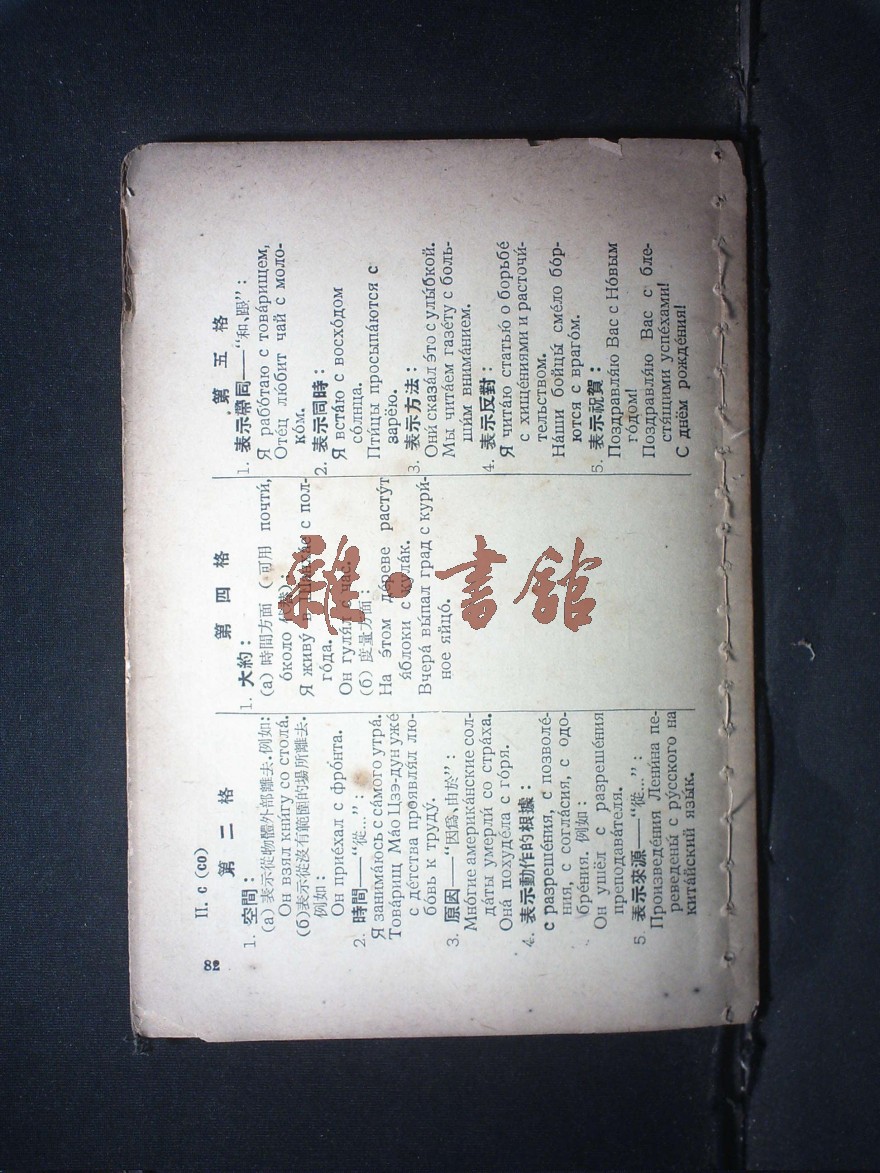 82
II. с (со)
第 二 格
1. 空間：
(а) 表示從物體外部離去. 例如:
Он взял кни́гу со стола́.
(б) 表示從沒有範圍的場所離去.
例如:
Он прие́хал с фро́нта.
2. 時間——“從...”：
Я занима́юсь с са́мого утра́.
Това́рищ Ма́о Цзэ-ду́н уже́
с де́тства проявля́л лю-
бо́вь к труду́.
3. 原因——“因爲、由於”：
Мно́гие америка́нские сол-
да́ты умерли́ со стра́ха.
Она́ похуде́ла с го́ря.
4. 表示動作的根據：
с разреше́ния, с позволе́-
ния, с согла́сия, с одо-
бре́ния. 例如:
Он ушёл с разреше́ния
преподава́теля.
5. 表示來源——“從...”：
Произведе́ния Ле́нина пе-
реведены́ с ру́сского на
кита́йский язы́к.
第 四 格
1. 大約：
(а) 時間方面 ( 可用 почти́,
о́коло
Я живу́ с пол-
го́да.
Он гуля́л с час.
(б) 度量方面
На э́том де́реве расту́т
я́блоки с кула́к.
Вчера́ вы́пал град с кури́-
ное яйцо́.
第 五 格
1. 表示帶同——“和、跟”：
Я рабо́таю с това́рищем,
Оте́ц лю́бит чай с моло-
ко́м.
2. 表示同時：
Я встаю́ с восхо́дом
со́лнца.
Пти́цы просыпа́ются с
зарёю.
3. 表示方法：
Они́ сказа́л э́то с улы́бкой.
Мы чита́ем газе́ту с боль-
ши́м внима́нием.
4. 表示反對：
Я чита́ю статью́ о борьбе́
с хище́ниями и расточи́-
тельством.
На́ши бойцы́ сме́ло бо́р-
ются с враго́м.
5. 表示祝賀：
Поздравля́ю Вас с Но́вым
го́дом!
Поздравля́ю Вас с бле-
стя́щими успе́хами!
С днём рожде́ния!
雜·書館